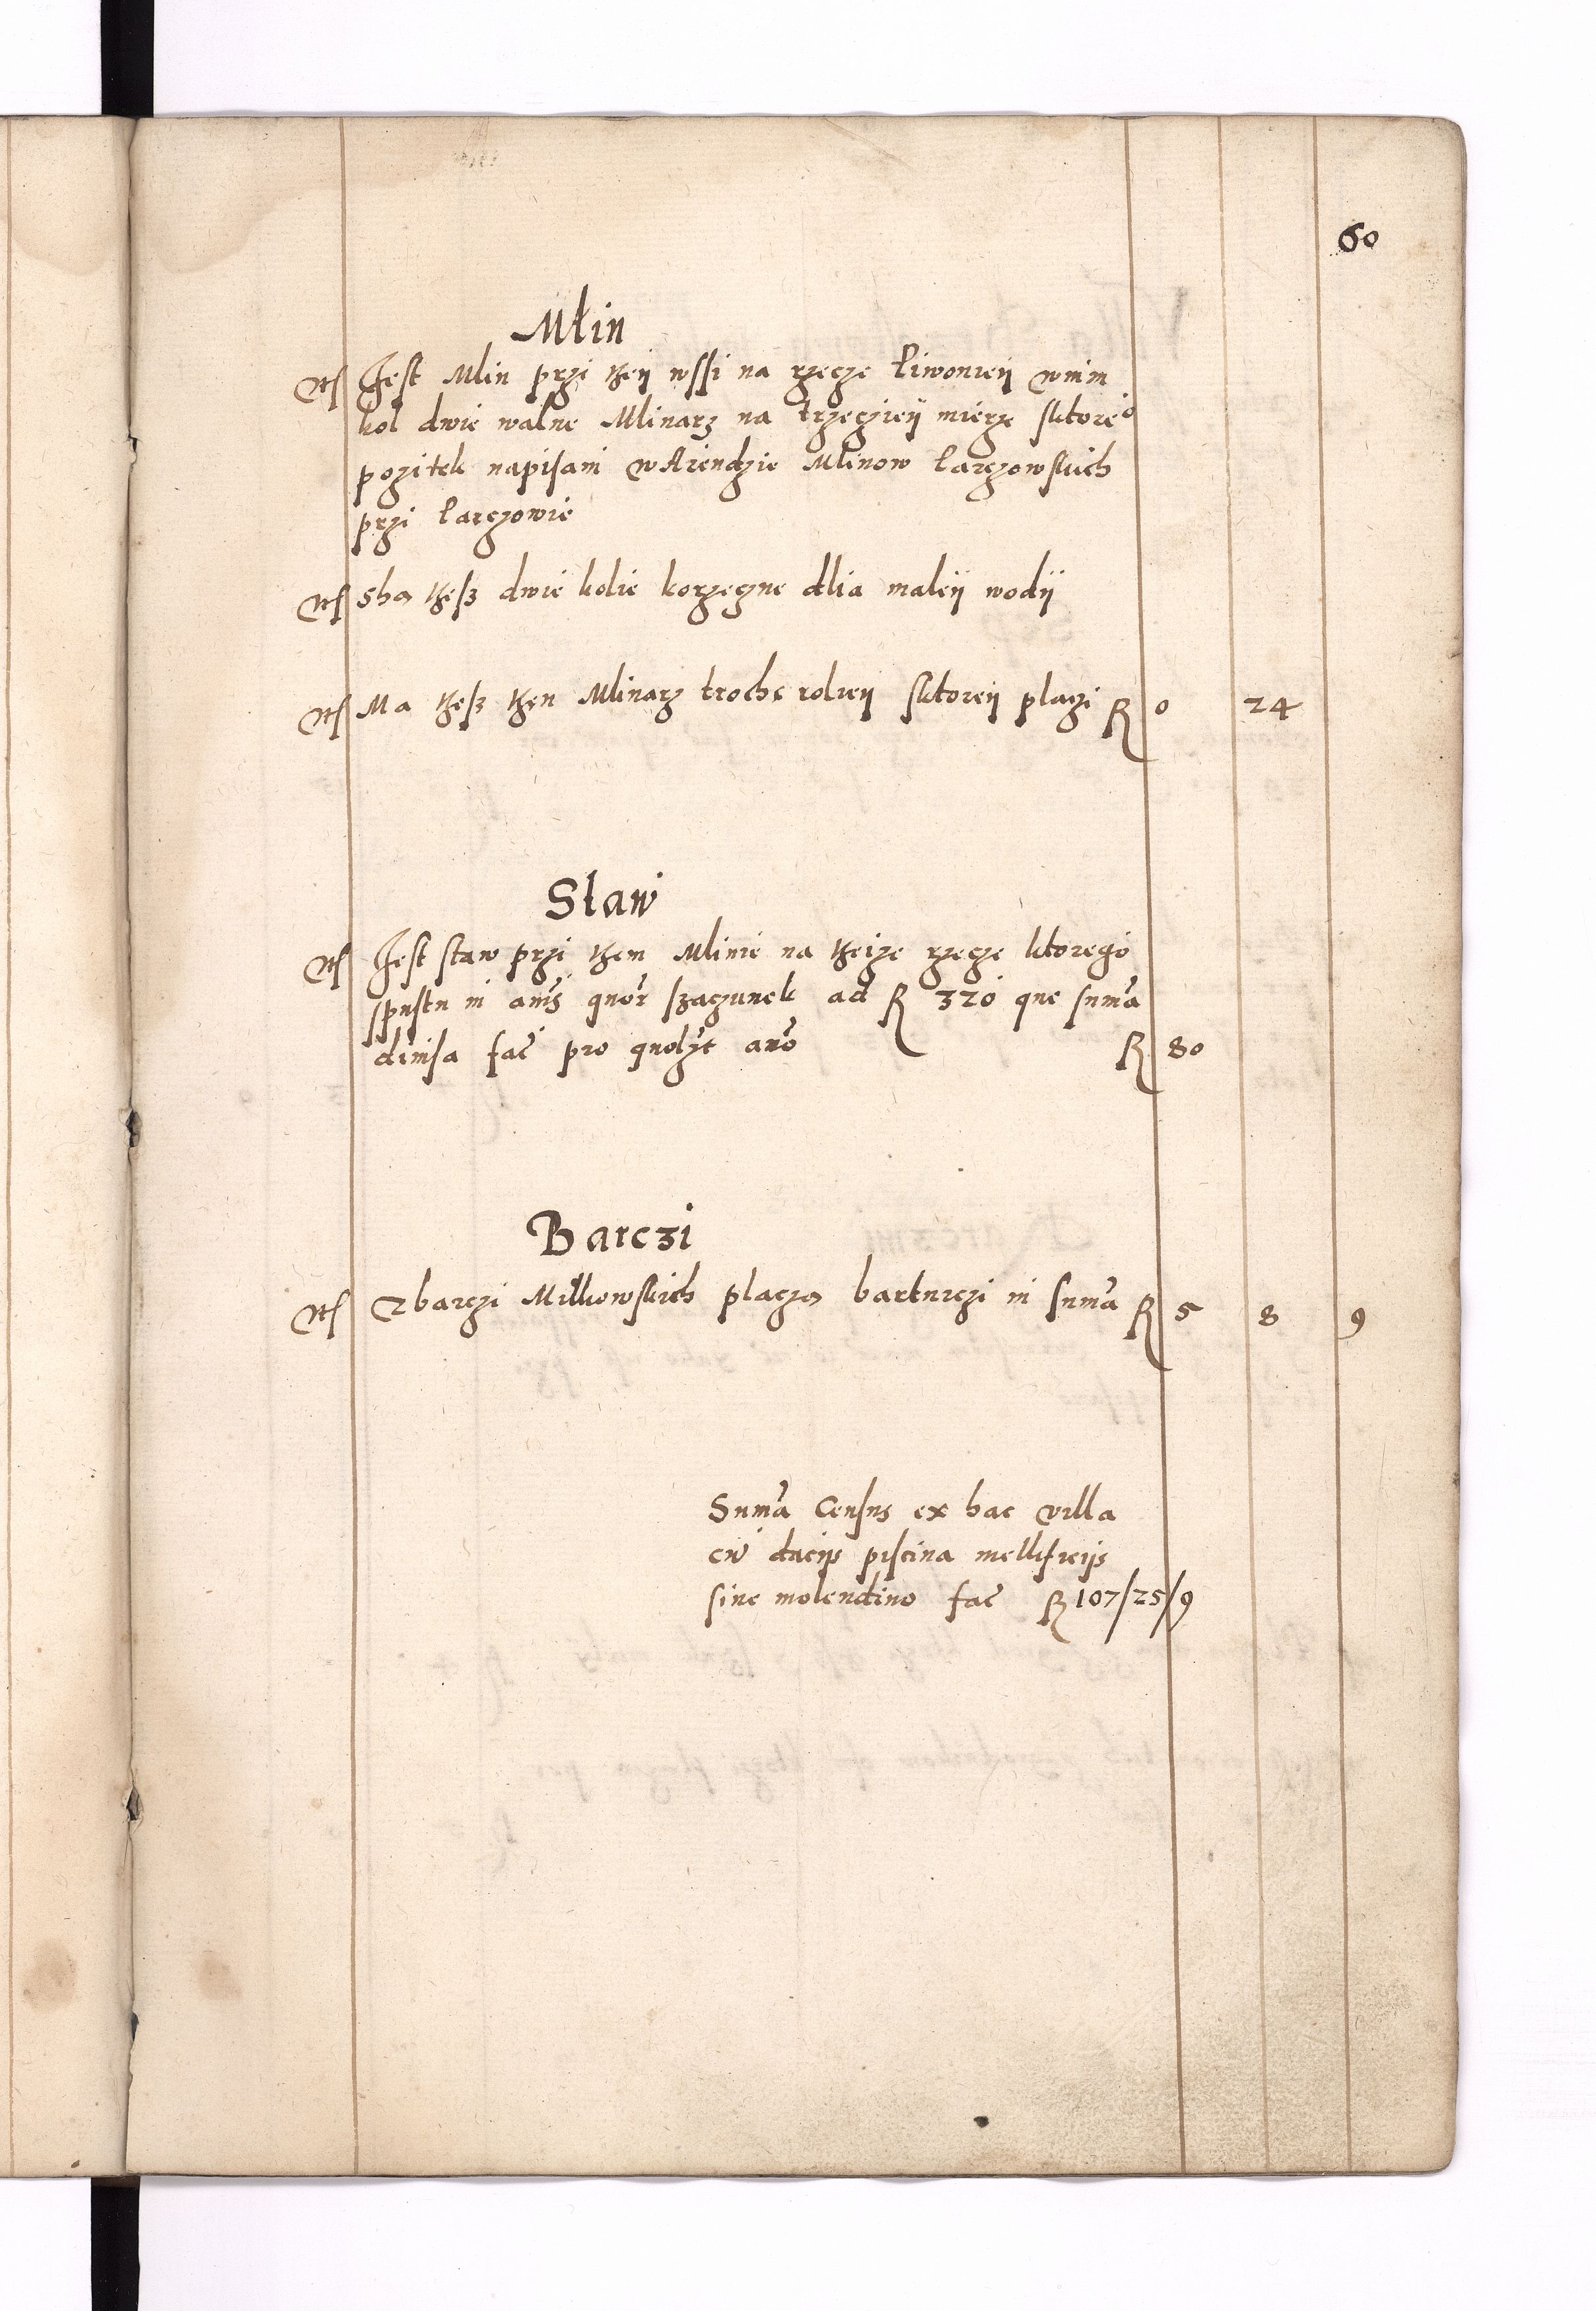 60
Młin
Its Jest Mlin przi theÿ wssi na rzecze Liwonieÿ w nim
kol dwie walne Mlinarz na trzeczieÿ mierze sktore°
pozitek napisani w Arendzie Mlinow Larczowskich
przi Larczowie
Its Sżą thesz dwie kolie korzeczne dlia maleÿ wodÿ
Its Ma thesz then Mlinarz troche rolieÿ sktoreÿ placzi R 0 24
Staw
Its Jest staw przi them Mlinie na theize rzecze ktorego
spustu in an̄s quor̄ szaczunek ad R 320 que sum̄a
diuisa fac̄ pro quolz̄t an̄o R 80
Barczi
Its Z barczi Milkowskich placzą bartniczi in sum̄a R 5 8 9
Sum̄a Census ex hac villa
cū dacijs piscina mellificijs
sine molendino fac̄ R 107/25/9